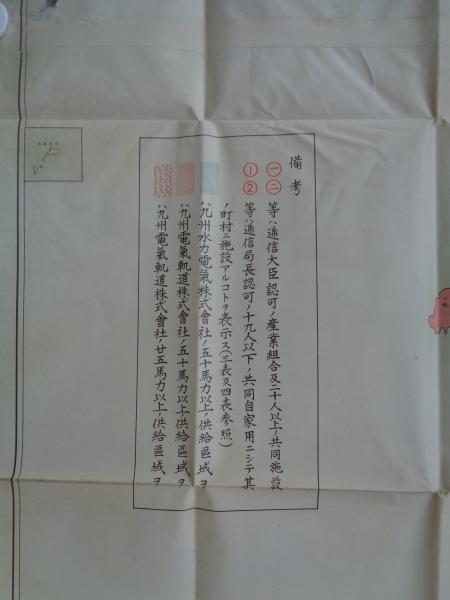 備考
㊀㊁等ハ逓信大臣認可ノ産業組合及二十人以上ノ共同施設
①②等ハ逓信局長認可ノ十九人以下ノ共同自家用ニシテ其
ノ町村ニ施設アルコトヲ表示ス(三表及四表參照)
ハ九州水力電氣株式會社ノ五十馬力以上ノ供給區域ヲ
ハ九州電氣軌道株式會社ノ五十馬力以上ノ供給區域ヲ
ハ九州電氣軌道株式會社ノ廿五馬力以上ノ供給區域ヲ